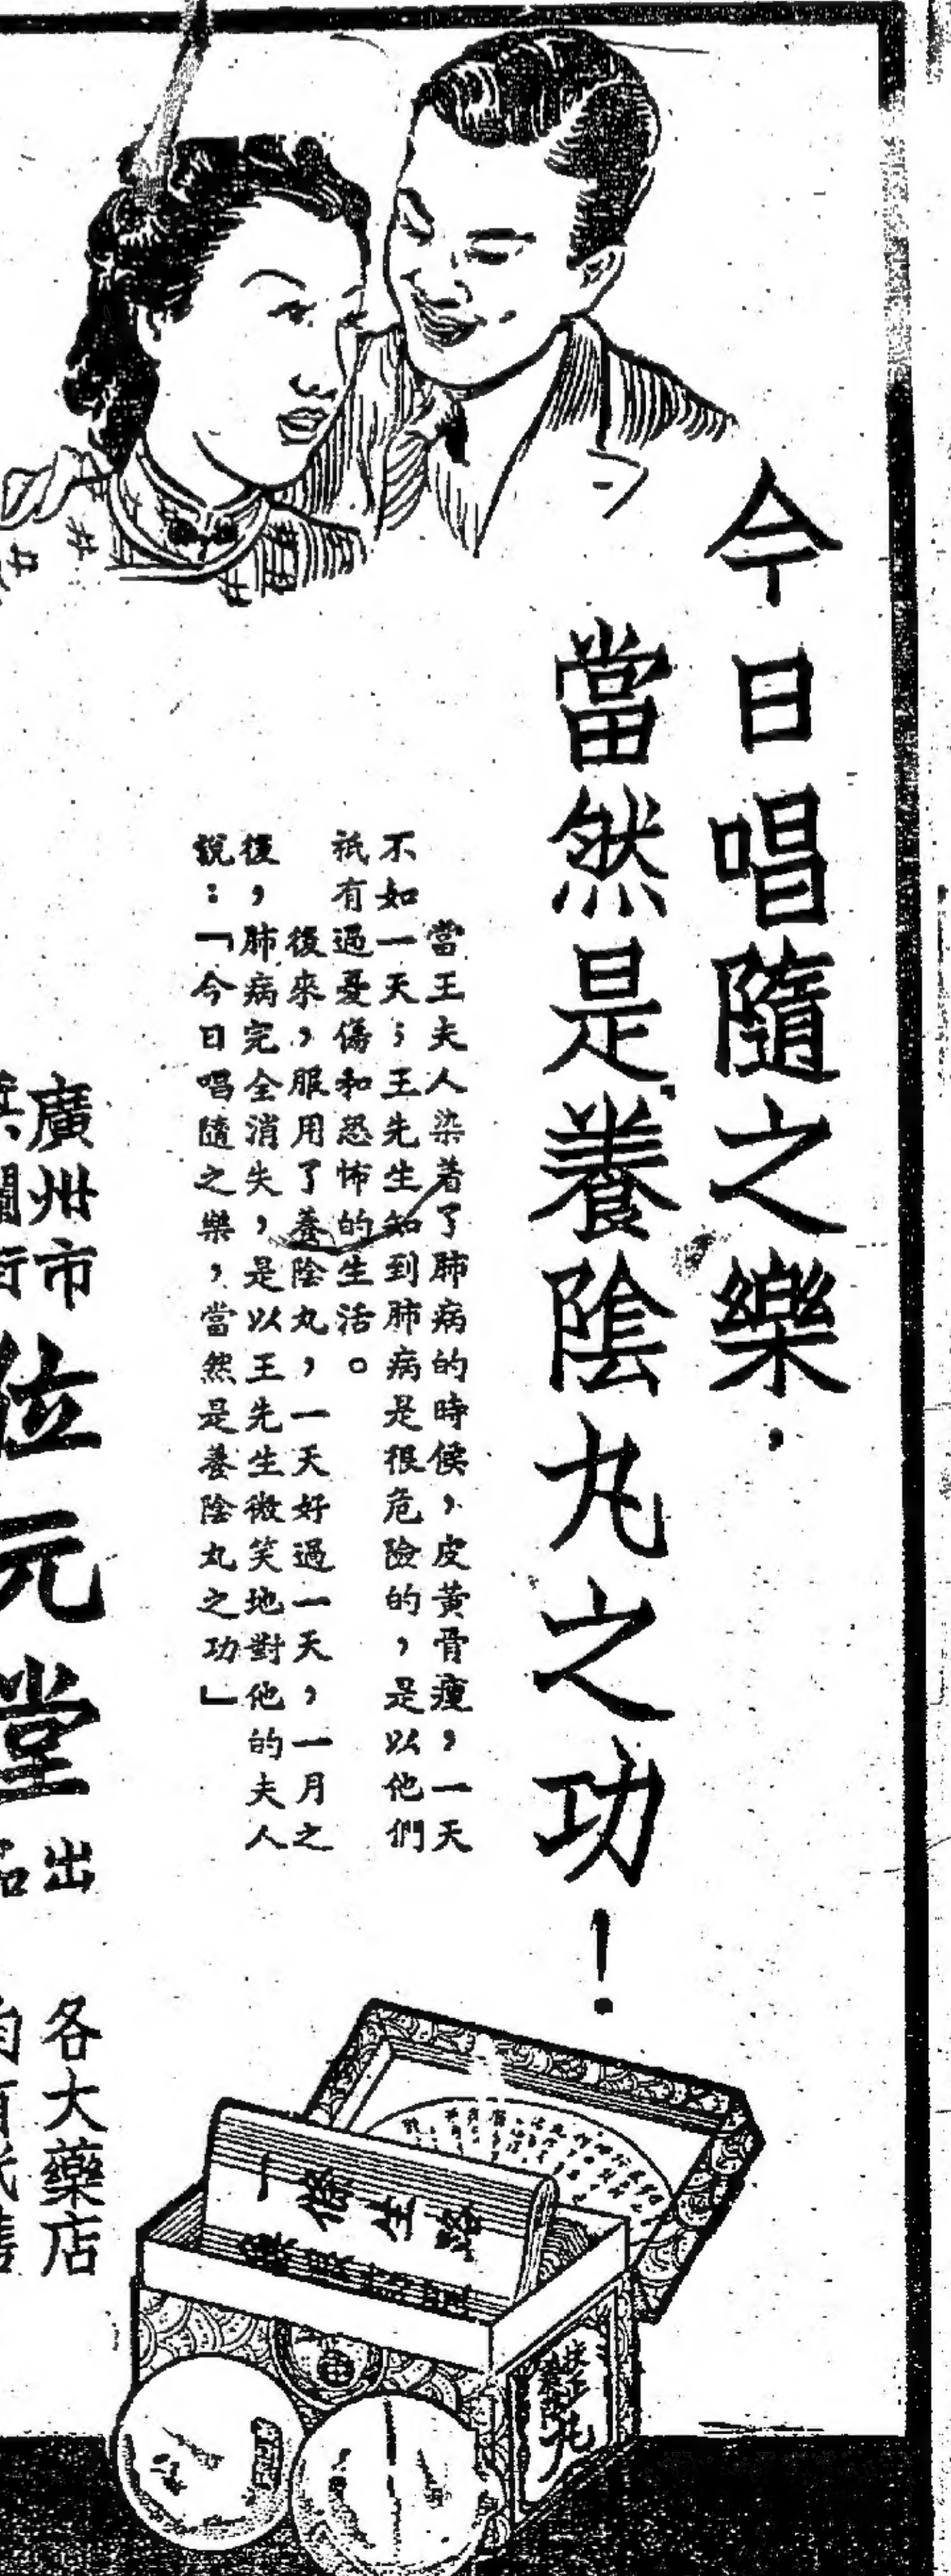 今日唱隨之樂，
當然是養陰丸之功！
當王夫人染着了肺病的時候，皮黃骨瘦，一天
不如一天；王先生知到肺病是很危險的，是以他們
祇有過憂傷和恐怖的生活。
後來，服用了養陰丸，一天好過一天，一月之
後，肺病完全消失，是以王先生微笑地對他的夫人
說：「今日唱隨之樂，當然是養陰丸之功」
廣州市
欄街
位元堂
出品
各大藥店
均有代售
一條生路